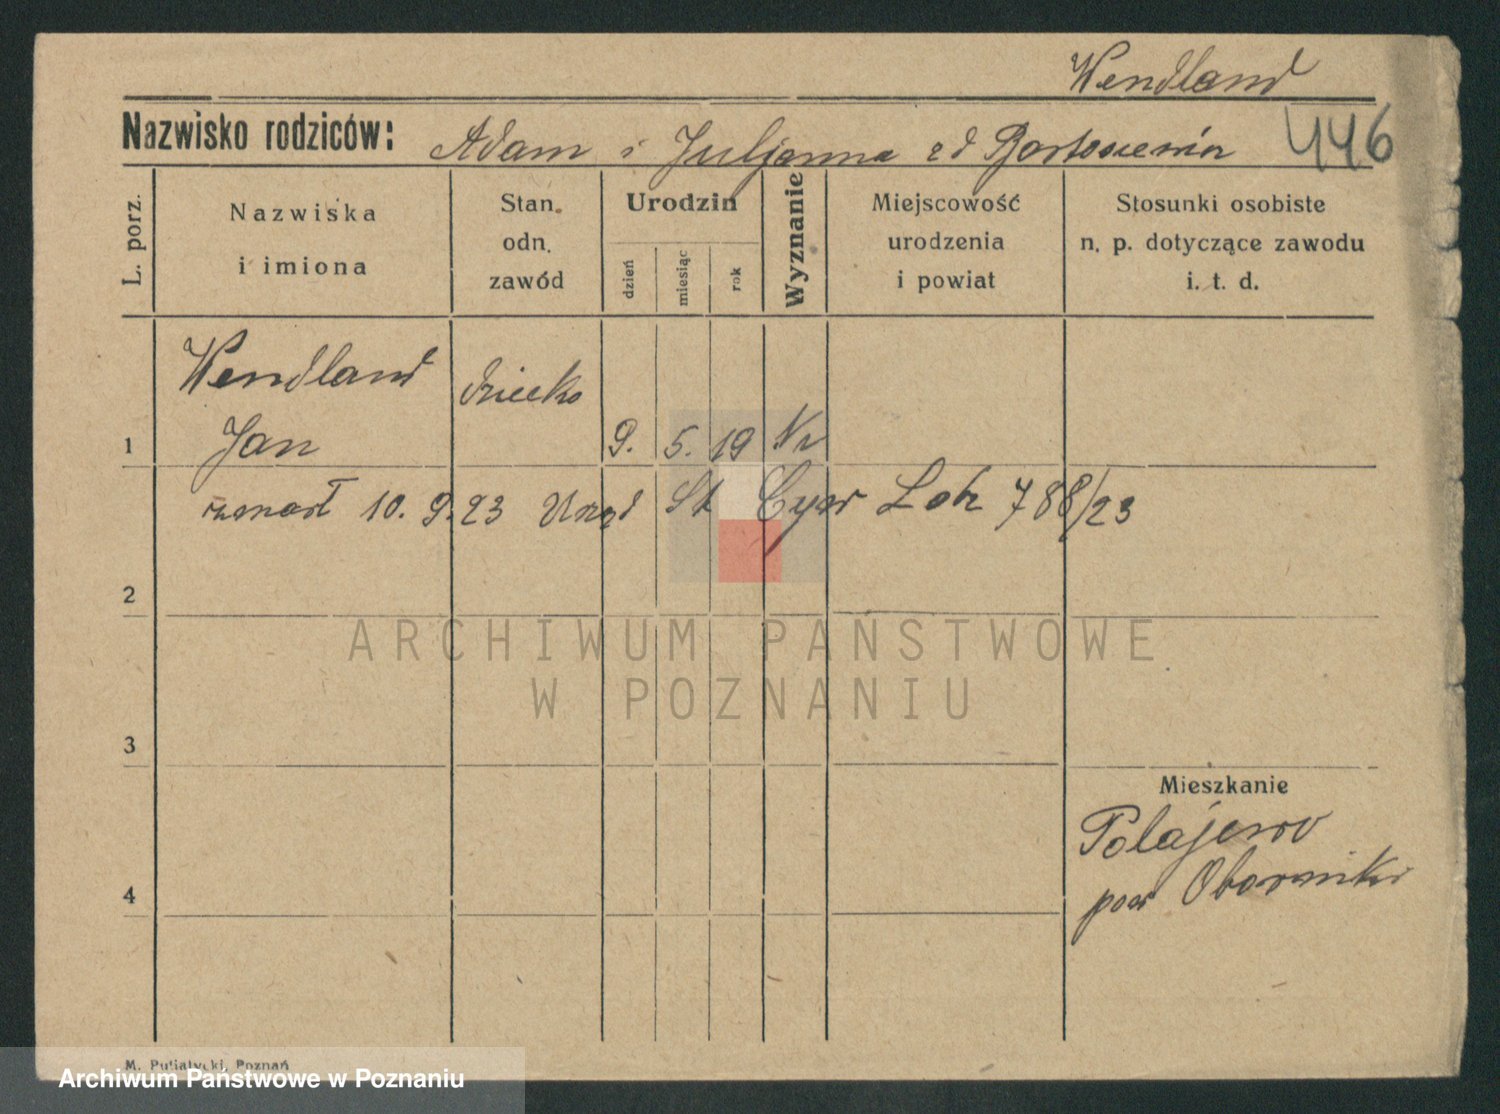 Wendland
Nazwisko rodziców: Adam i Juljanna zd 446
L. porz.
Nazwiska
i imiona
Stan.
odn.
zawód
Urodzin
dzień
miesiąc
rok
Wyznanie
Miejscowość
urodzenia
i powiat
Stosunki osobiste
n. p. dotyczące zawodu
i. t. d.
Wendland dziecko
1 Jan 9. 5. 19
zmarł 10. 9. 23 Urząd St Cyw Lok 788/23
2
3
Mieszkanie
Polajewo
4 pow Oborniki
ARCHIWUM PAŃSTWOWE
W POZNANIU
M. Putiatycki, Poznań
Archiwum Państwowe w Poznaniu